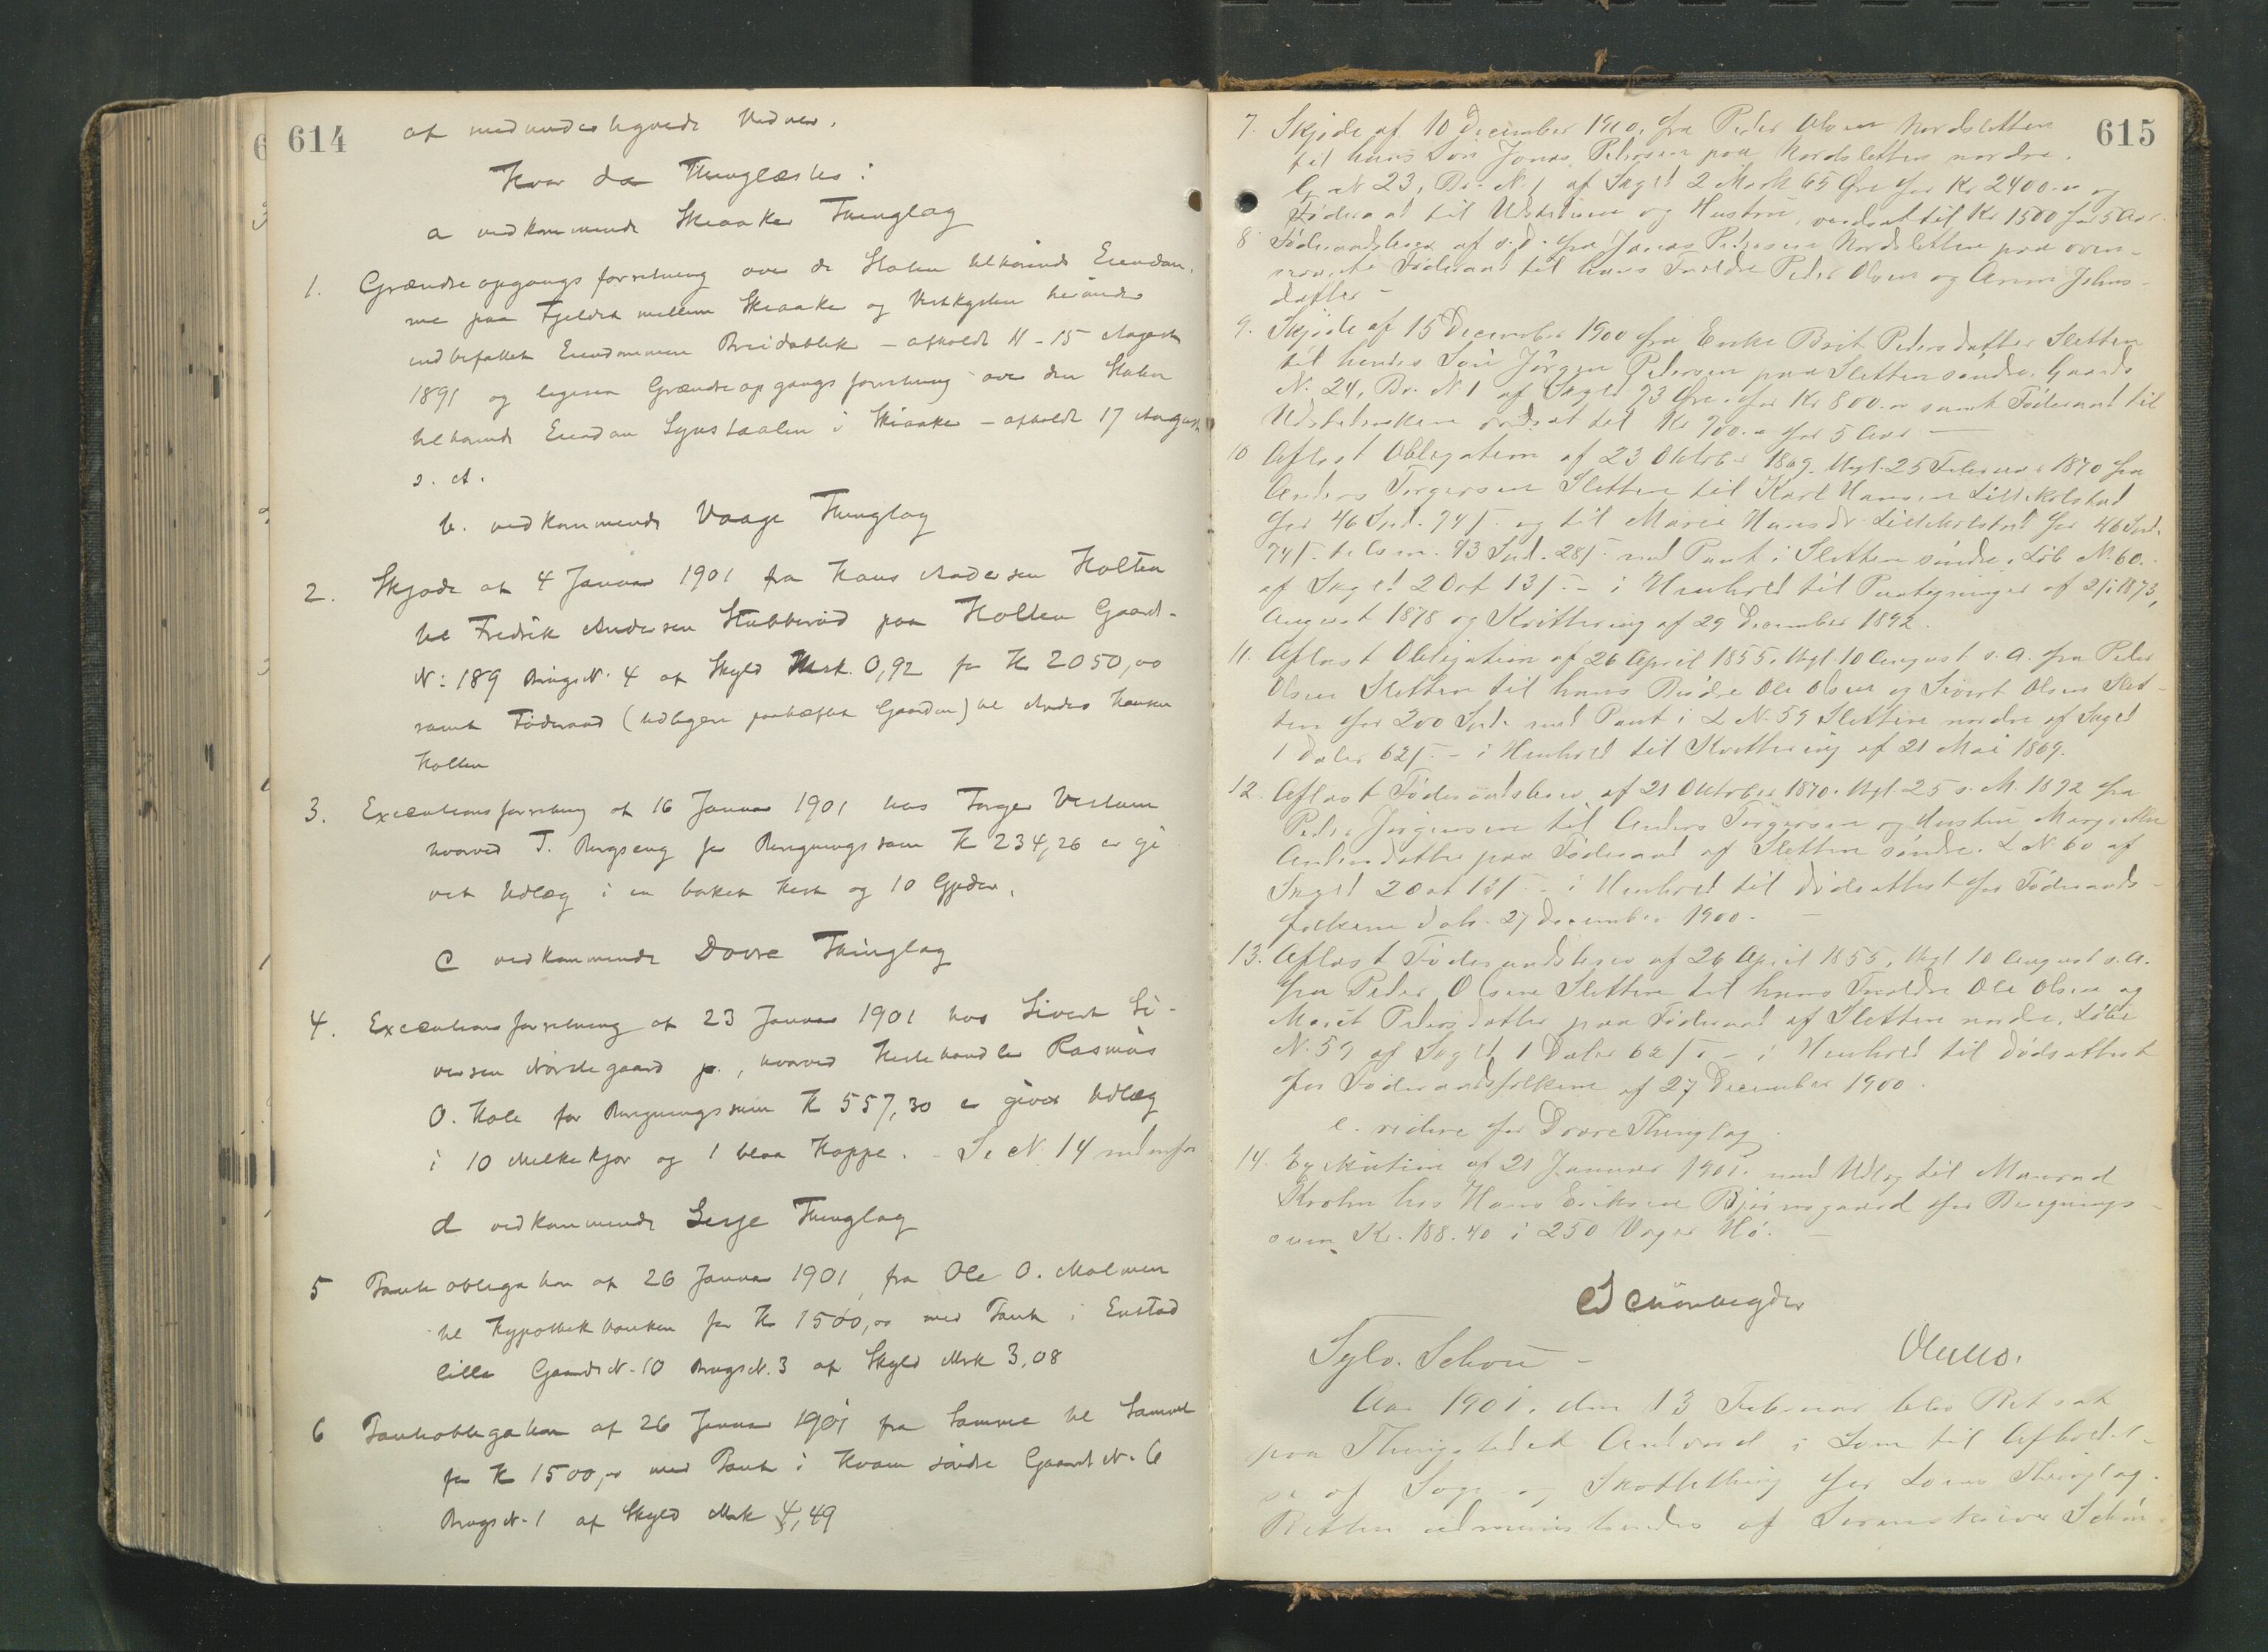 614
af medundertegnede Vidner.
Hvor da Thinglæstes:
a vedkommende Skiaker Thinglag
1. Grændseopgangsforretning over de Staten tilhørende Eiendom-
me paa Fjeldet mellem Skiaker og Vestkysten herunder
indbefattet Eiendommen Breidablik - afholdt 11-15 August
1891 og ligesaa Grændseopgangsforretning over den Staten
tilhørende Eiendom i Skiaker - afholdt 17 August
s. A.
b. vedkommende Vaage Thinglag
2. Skjøde af 4 Januar 1901 fra Hans Andersen Holten
til Fredrik Andersen Stubberud paa Holten Gaards-
N: 189 BrugsN. 4 af Skyld Mrk. 0,92 for Kr 2050,00
samt Føderaad (tidligere paaheftet Gaarden) til Anders Hansen
Holten
3. Executionsforretning af 16 Januar 1901 hos Torger Veslum
hvorved T. Bergseng for Beregningssum Kr 234,26 er gi
vet Udlæg i en borket Hest og 10 Gjeder.
C vedkommende Dovre Thinglag
4. Executionsforretning af 23 Januar 1901 hos Sivert Si-
versen Nørstegaard jr., hvorved Hestehandler Rasmus
O. Hole for Beregningssum Kr 557,30 er givet Udlæg
i 10 Melkekjør og 1 blaa Hoppe. - Se N 14 nedenfor
d vedkommende Lesje Thinglag
5 Panteobligation af 26 Januar 1901, fra Ole O. Malmen
til Hypothekbanken for Kr 1500,00 med Pant i Enstad
lille GaardsN. 10 BrugsN. 3 af Skyld Mrk 3,08
6 Panteobligation af 26 Januar 1901 fra Samme til Samme
for Kr 1500,00 med Pant i Kvam søndre GaardsN. 6
BrugsN. 1 af Skyld Mrk 4,49
615
7. Skjøde af 10 December 1900, fra Peder Olsen Nordsletten
til hans Søn Jonas Pedersen paa Nordsletten nordre.
G. N 23, Br. N. 1 af Skyld 2 Mark 65 Øre for Kr 2400.00 og
Føderaad til Udstederen og Hustru, værdsat til Kr 1500 for 5 Aar.
8 Føderaadsbrev af s. d. fra Jonas Pedersen Nordsletten paa oven-
nævnte Føderaad til hans Forældre Peder Olsen og Anne Johns-
datter -
9. Skjøde af 15 December 1900 fra Enke Brit Pedersdatter Sletten
til hendes Søn Jørgen Pedersen paa Sletten søndre, Gaards
N. 24, Br. N 1 af Skyld 73 Øre, for Kr 800.00 samt Føderaad til
Udstedersken værdsat til Kr 700.00 for 5 Aar -
10 Aflæst Obligation af 23 Oktober 1869. thgl. 25 Februar 1870 fra
Anders Torgersen Sletten til Karl Hansen Lillekolstad
for 46 Spd. 74 ß og til Marie Hansdr. Lillekolstad for 46 Spd.
74 ß. tilsm. 93 Spd. 28 ß. med Pant i Sletten søndre, Løb N. 60.
af Skyld 2 Ort 13 ß. - i Henhold til Paategninger af 2/1 1873,
August 1878 og Kvittering af 29 December 1892.
11. Aflæst Obligation af 26 April 1855, thgl. 10 August s. A. fra Peder
Olsen Sletten til hans Brødre Ole Olsen og Sivert Olsen Slet-
ten for 200 Spd. med Pant i L N. 59 Sletten nordre af Skyld
1 Daler 62 ß. - i Henhold til Kvittering af 21 Mai 1869.
12. Aflæst Føderaadsbrev af 21 Oktober 1870. thgl. 25 s. M. 1892 fra
Peder Jørgensen til Anders Torgersen og Hustru Margrethe
Andersdatter paa Føderaad af Sletten søndre. L N 60 af
Skyld 2 Ort 13 ß - i Henhold til Dødsattest for Føderaads-
folkene dat. 27 December 1900. -
13. Aflæst Føderaadsbrev af 26 April 1855, thgl 10 August s. A.
fra Peder Olsen Sletten til hans Forældre Ole Olsen og
Marit Pedersdatter paa Føderaad af Sletten nordre, Løbe
N. 59 af Skyld 1 Daler 62 ß. - i Henhold til Dødsattest
for Føderaadsfolkene af 27 December 1900.
e. videre for Dovre Thinglag.
14. Exekution af 21 Januar 1901. med Udlæg til
Krohn hos Hans Eriksen Bjørnsgaard for Beregnings-
sum Kr. 188.40 i 250 Voger Hø. -
Sylv. Schou -
Aar 1901, den 13 Februar blev Ret sat
paa Thingstedet Andvord i Lom til Afholdel-
se af Sage- og Skattething for Loms Thinglag.
Retten administreredes af Sorenskriver Schön-